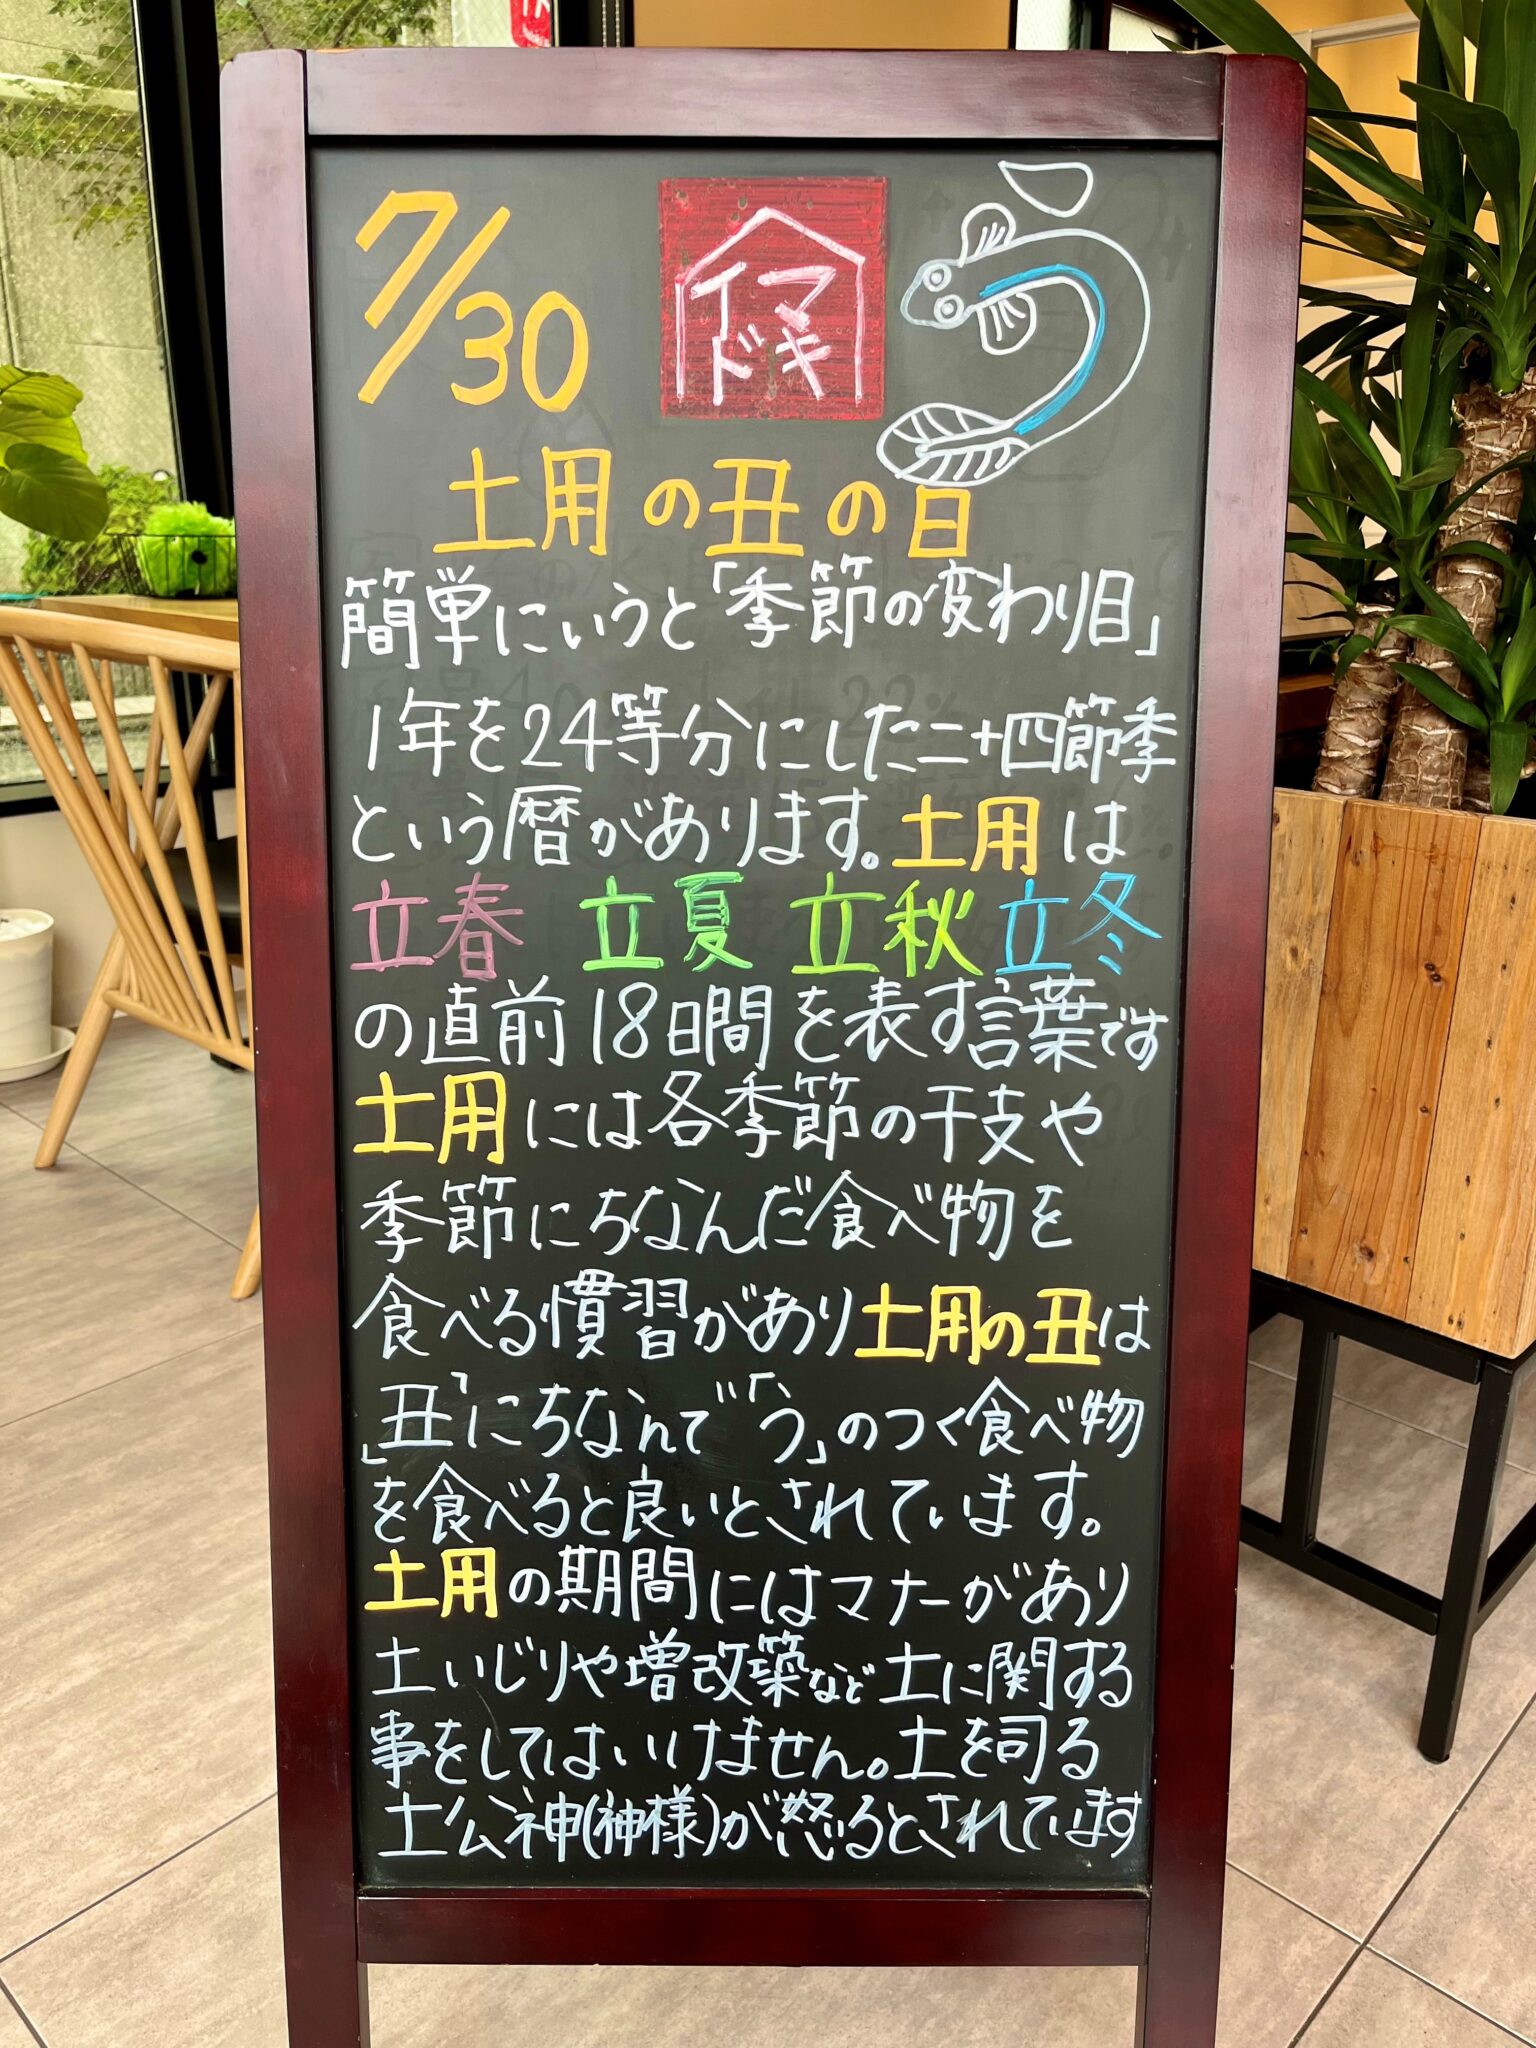 7/30
イマドキ
う
土用の丑の日
簡単にいうと「季節の変わり目」
1年を24等分にした二十四節季
という暦があります。土用は
立春 立夏 立秋 立冬
の直前18日間を表す言葉です
土用には各季節の干支や
季節にちなんだ食べ物を
食べる慣習があり土用の丑は
「丑」にちなんで「う」のつく食べ物
を食べると良いとされています。
土用の期間にはマナーがあり
土いじりや増改築など土に関する
事をしてはいけません。土を司る
土公神(神様)が怒るとされています